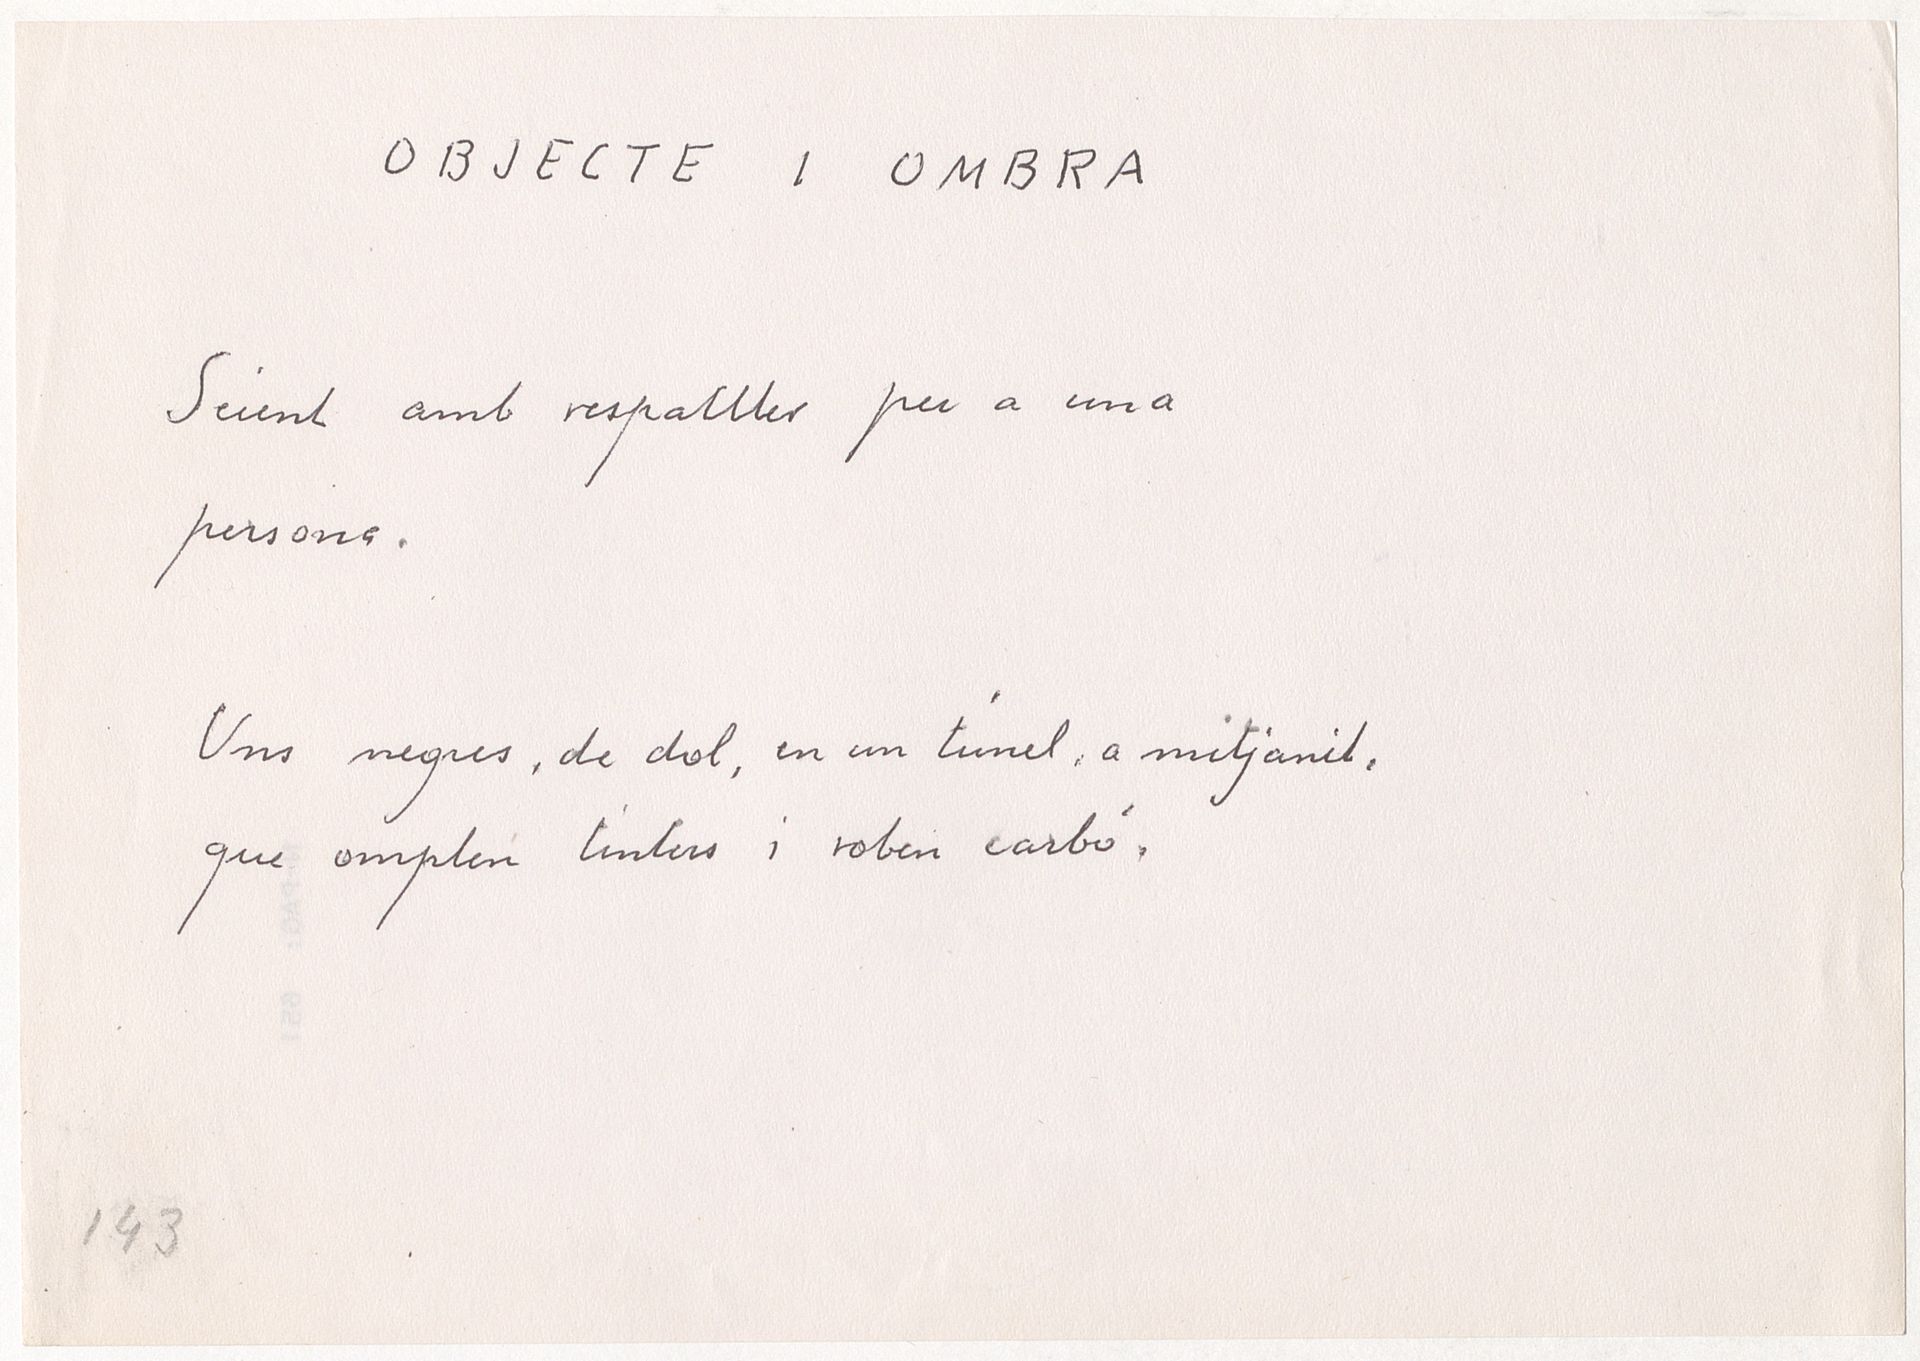 OBJECTE I OMBRA
Seient amb respatller per a una
persona.
Uns negres, de dol, en un túnel, a mitjanit,
que omplen tinters i roben carbó.
143